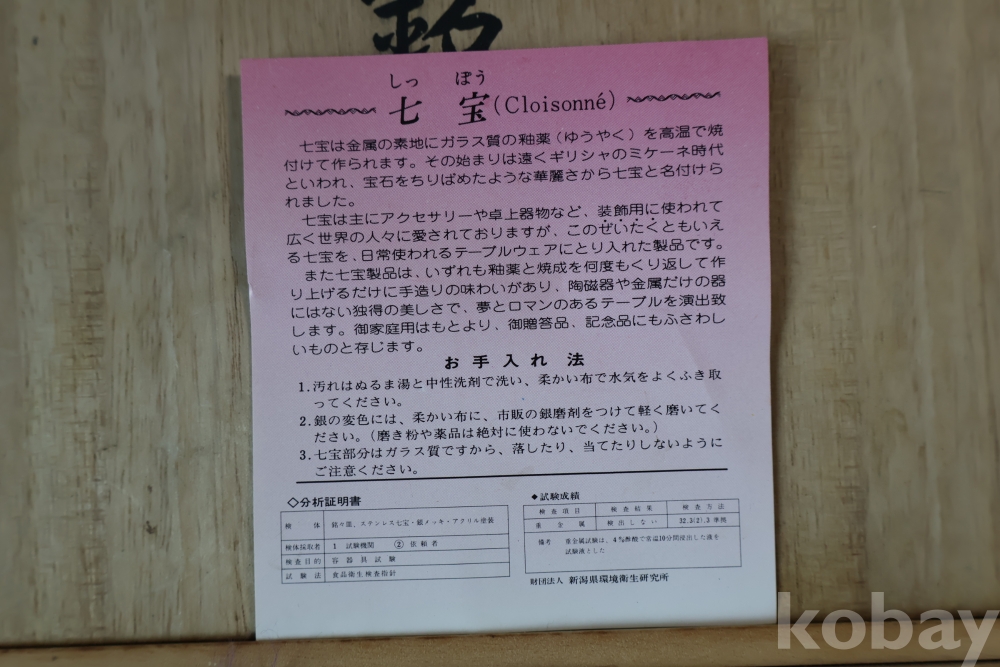 しっ ぽう
七 宝(Cloisonné)
七宝は金属の素地にガラス質の釉薬(ゆうやく)を高温で焼
付けて作られます。その始まりは遠くギリシャのミケーネ時代
といわれ、宝石をちりばめたような華麗さから七宝と名付けら
れました。
七宝は主にアクセサリーや卓上器物など、装飾用に使われて
広く世界の人々に愛されておりますが、このぜいたくともいえ
る七宝を、日常使われるテーブルウェアにとり入れた製品です。
また七宝製品は、いずれも釉薬と焼成を何度もくり返して作
り上げるだけに手造りの味わいがあり、陶磁器や金属だけの器
にはない独得の美しさで、夢とロマンのあるテーブルを演出致
します。御家庭用はもとより、御贈答品、記念品にもふさわし
いものと存じます。
お手入れ法
1.汚れはぬるま湯と中性洗剤で洗い、柔かい布で水気をよくふき取
ってください。
2.銀の変色には、柔かい布に、市販の銀磨剤をつけて軽く磨いてく
ださい。(磨き粉や薬品は絶対に使わないでください。)
3.七宝部分はガラス質ですから、落したり、当てたりしないように
ご注意ください。
◇分析証明書
検体 銘々皿、ステンレス七宝・銀メッキ・アクリル塗装
検体採取者 1 試験機関 ② 依頼者
検査目的 容器具試験
試験法 食品衛生検査指針
◆試験成績
検査項目 検査結果 検査方法
重金属 検出しない 32.3(2).3 準拠
備考 重金属試験は、4%酢酸で常温10分間浸出した液を
試験液とした
財団法人 新潟県環境衛生研究所
kobay